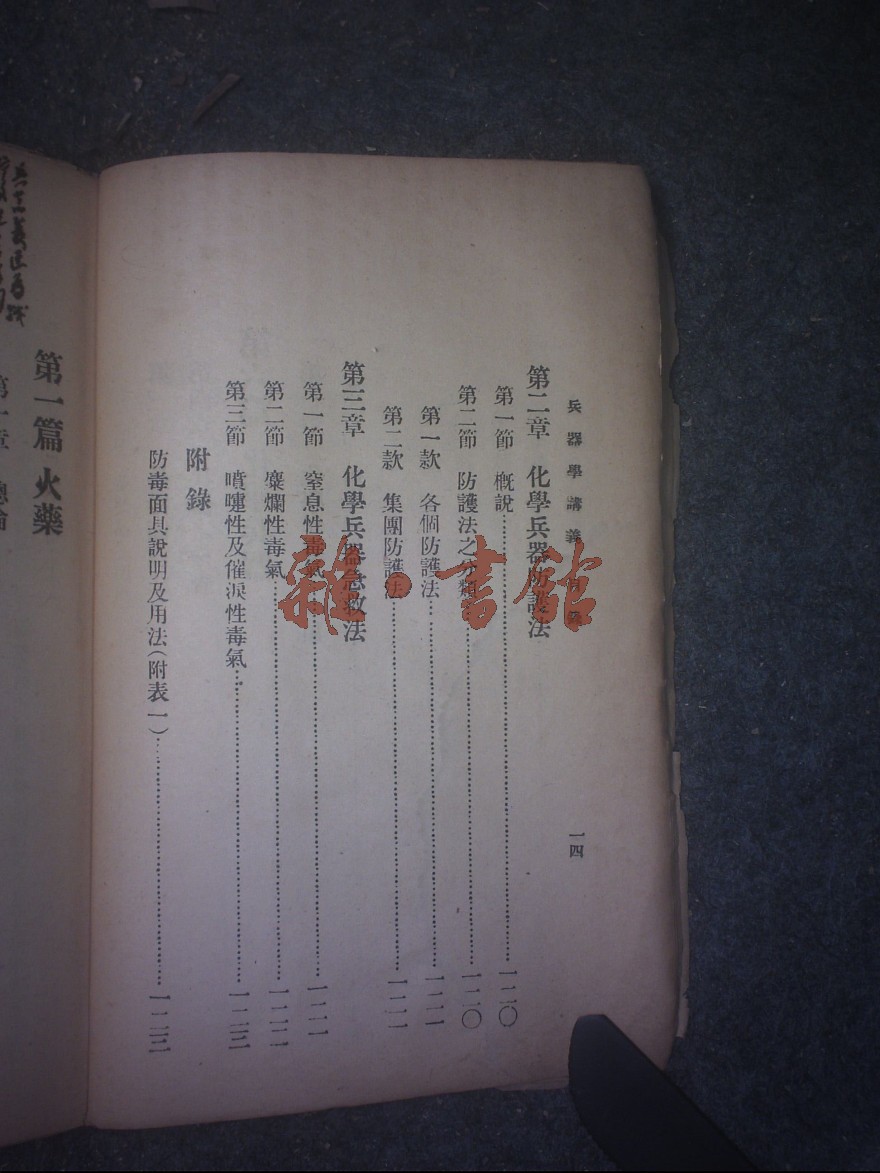 兵器學講義 目錄 一四
第二章 化學兵器防護法
第一節 概說……一二〇
第二節 防護法之分類……一二〇
第一款 各個防護法……一二一
第二款 集團防護法……一二一
第三章 化學兵器急救法
第一節 窒息性毒氣……一二二
第二節 糜爛性毒氣……一二二
第三節 噴嚏性及催淚性毒氣……一二三
附錄
防毒面具說明及用法(附表一)……一二三
第一篇 火藥
第一章 總論
雜·書館